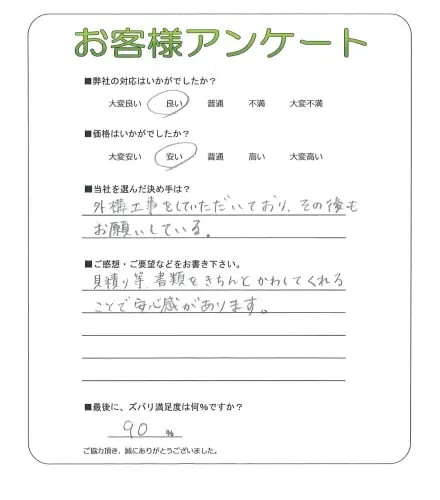 お客様アンケート
■弊社の対応はいかがでしたか?
大変良い 良い 普通 不満 大変不満
■価格はいかがでしたか?
大変安い 安い 普通 高い 大変高い
■当社を選んだ決め手は?
外構工事をしていただいており、その後も
お願いしている。
■ご感想・ご要望などをお書き下さい。
見積り等、書類をきちんとかわしてくれる
ことで安心感があります。
■最後に、ズバリ満足度は何%ですか?
90 %
ご協力頂き、誠にありがとうございました。